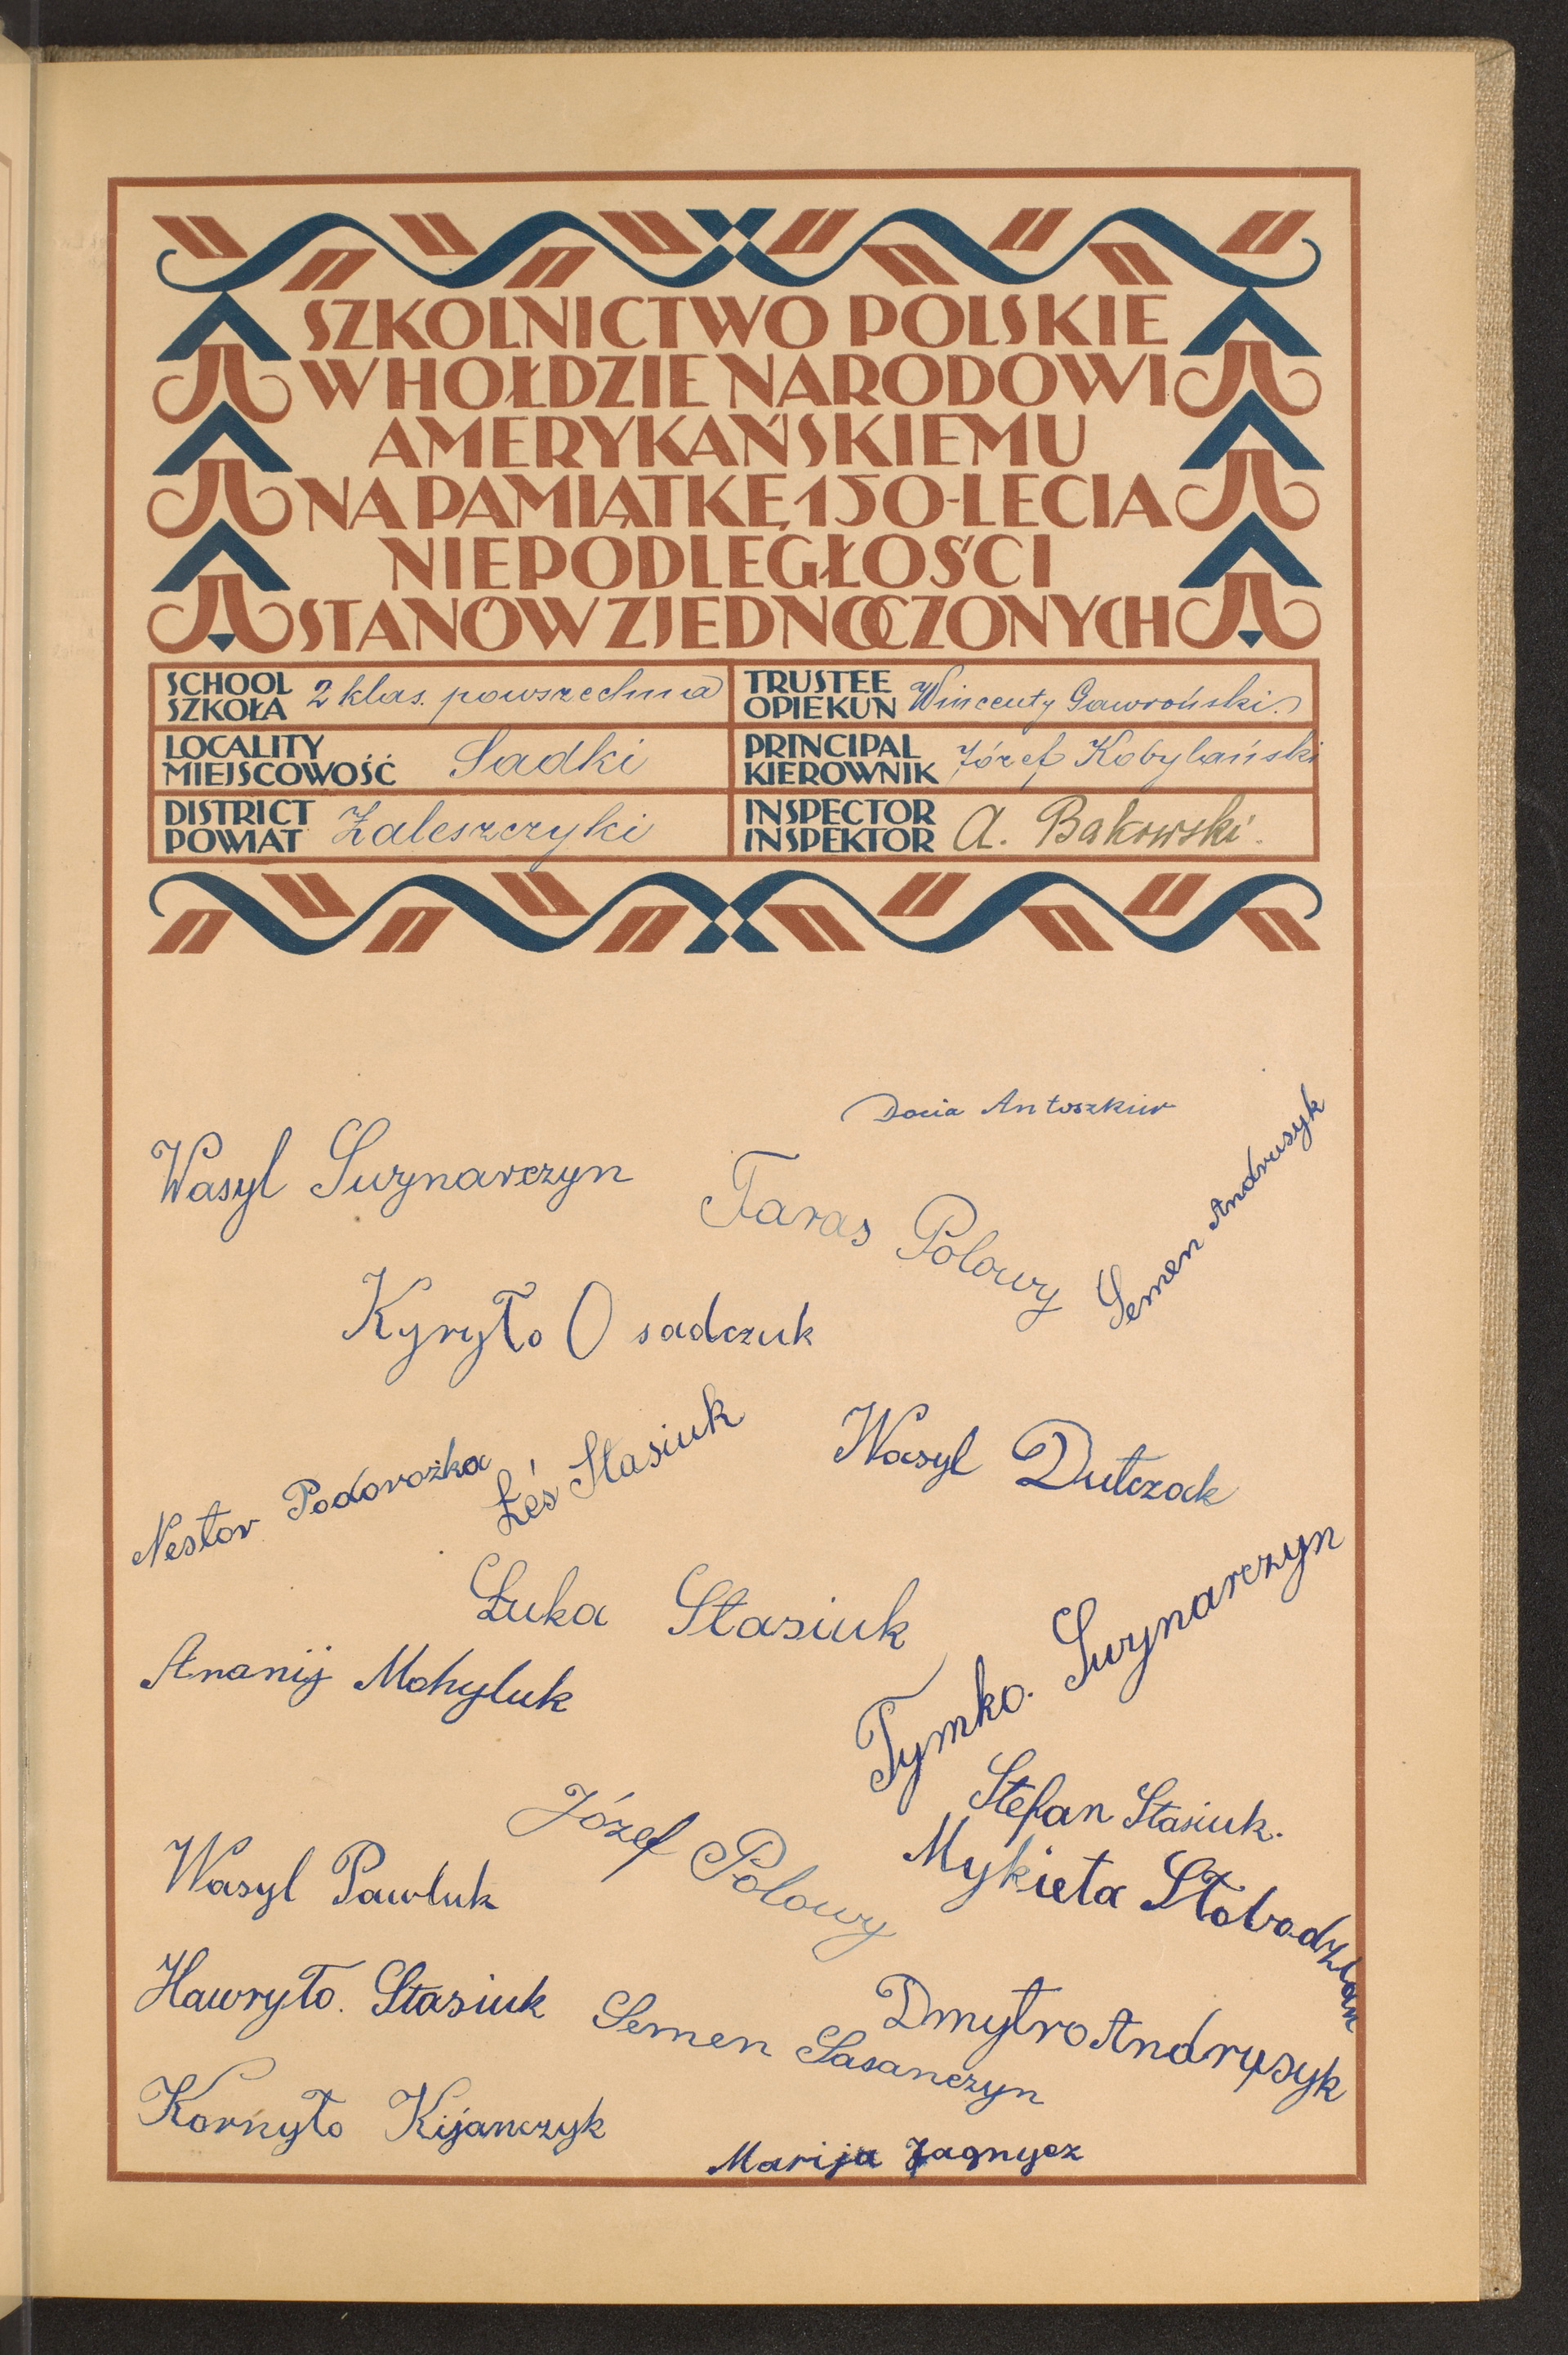 SZKOLNICTWO POLSKIE
W HOŁDZIE NARODOWI
AMERYKAŃSKIEMU
NA PAMIĄTKĘ 150-LECIA
NIEPODLEGŁOŚCI
STANÓW ZJEDNOCZONYCH
SCHOOL
SZKOŁA 2 klas. powszechna
TRUSTEE
OPIEKUN Wincenty Gawroński
LOCALITY
MIEJSCOWOŚĆ Sadki
PRINCIPAL
KIEROWNIK Józef Kobylański
DISTRICT
POWIAT Zaleszczyki
INSPECTOR
INSPEKTOR A. Bakowski.
Docia Antoszkiw
Wasyl Swynarczyn
Taras Polowy
Semen Andrusyk
Kyryło Osadczuk
Nestor Podorożka
Łeś Stasiuk
Wasyl Dutczak
Łuka Stasiuk
Tymko. Swynarczyn
Ananij Mohyluk
Stefan Stasiuk.
Józef Polowy
Mykieta Słobodzian
Wasyl Pawluk
Hawryło. Stasiuk
Semen Sasanczyn
Dmytro Andrusyk
Kornyło Kijanczyk
Marija Jagnycz